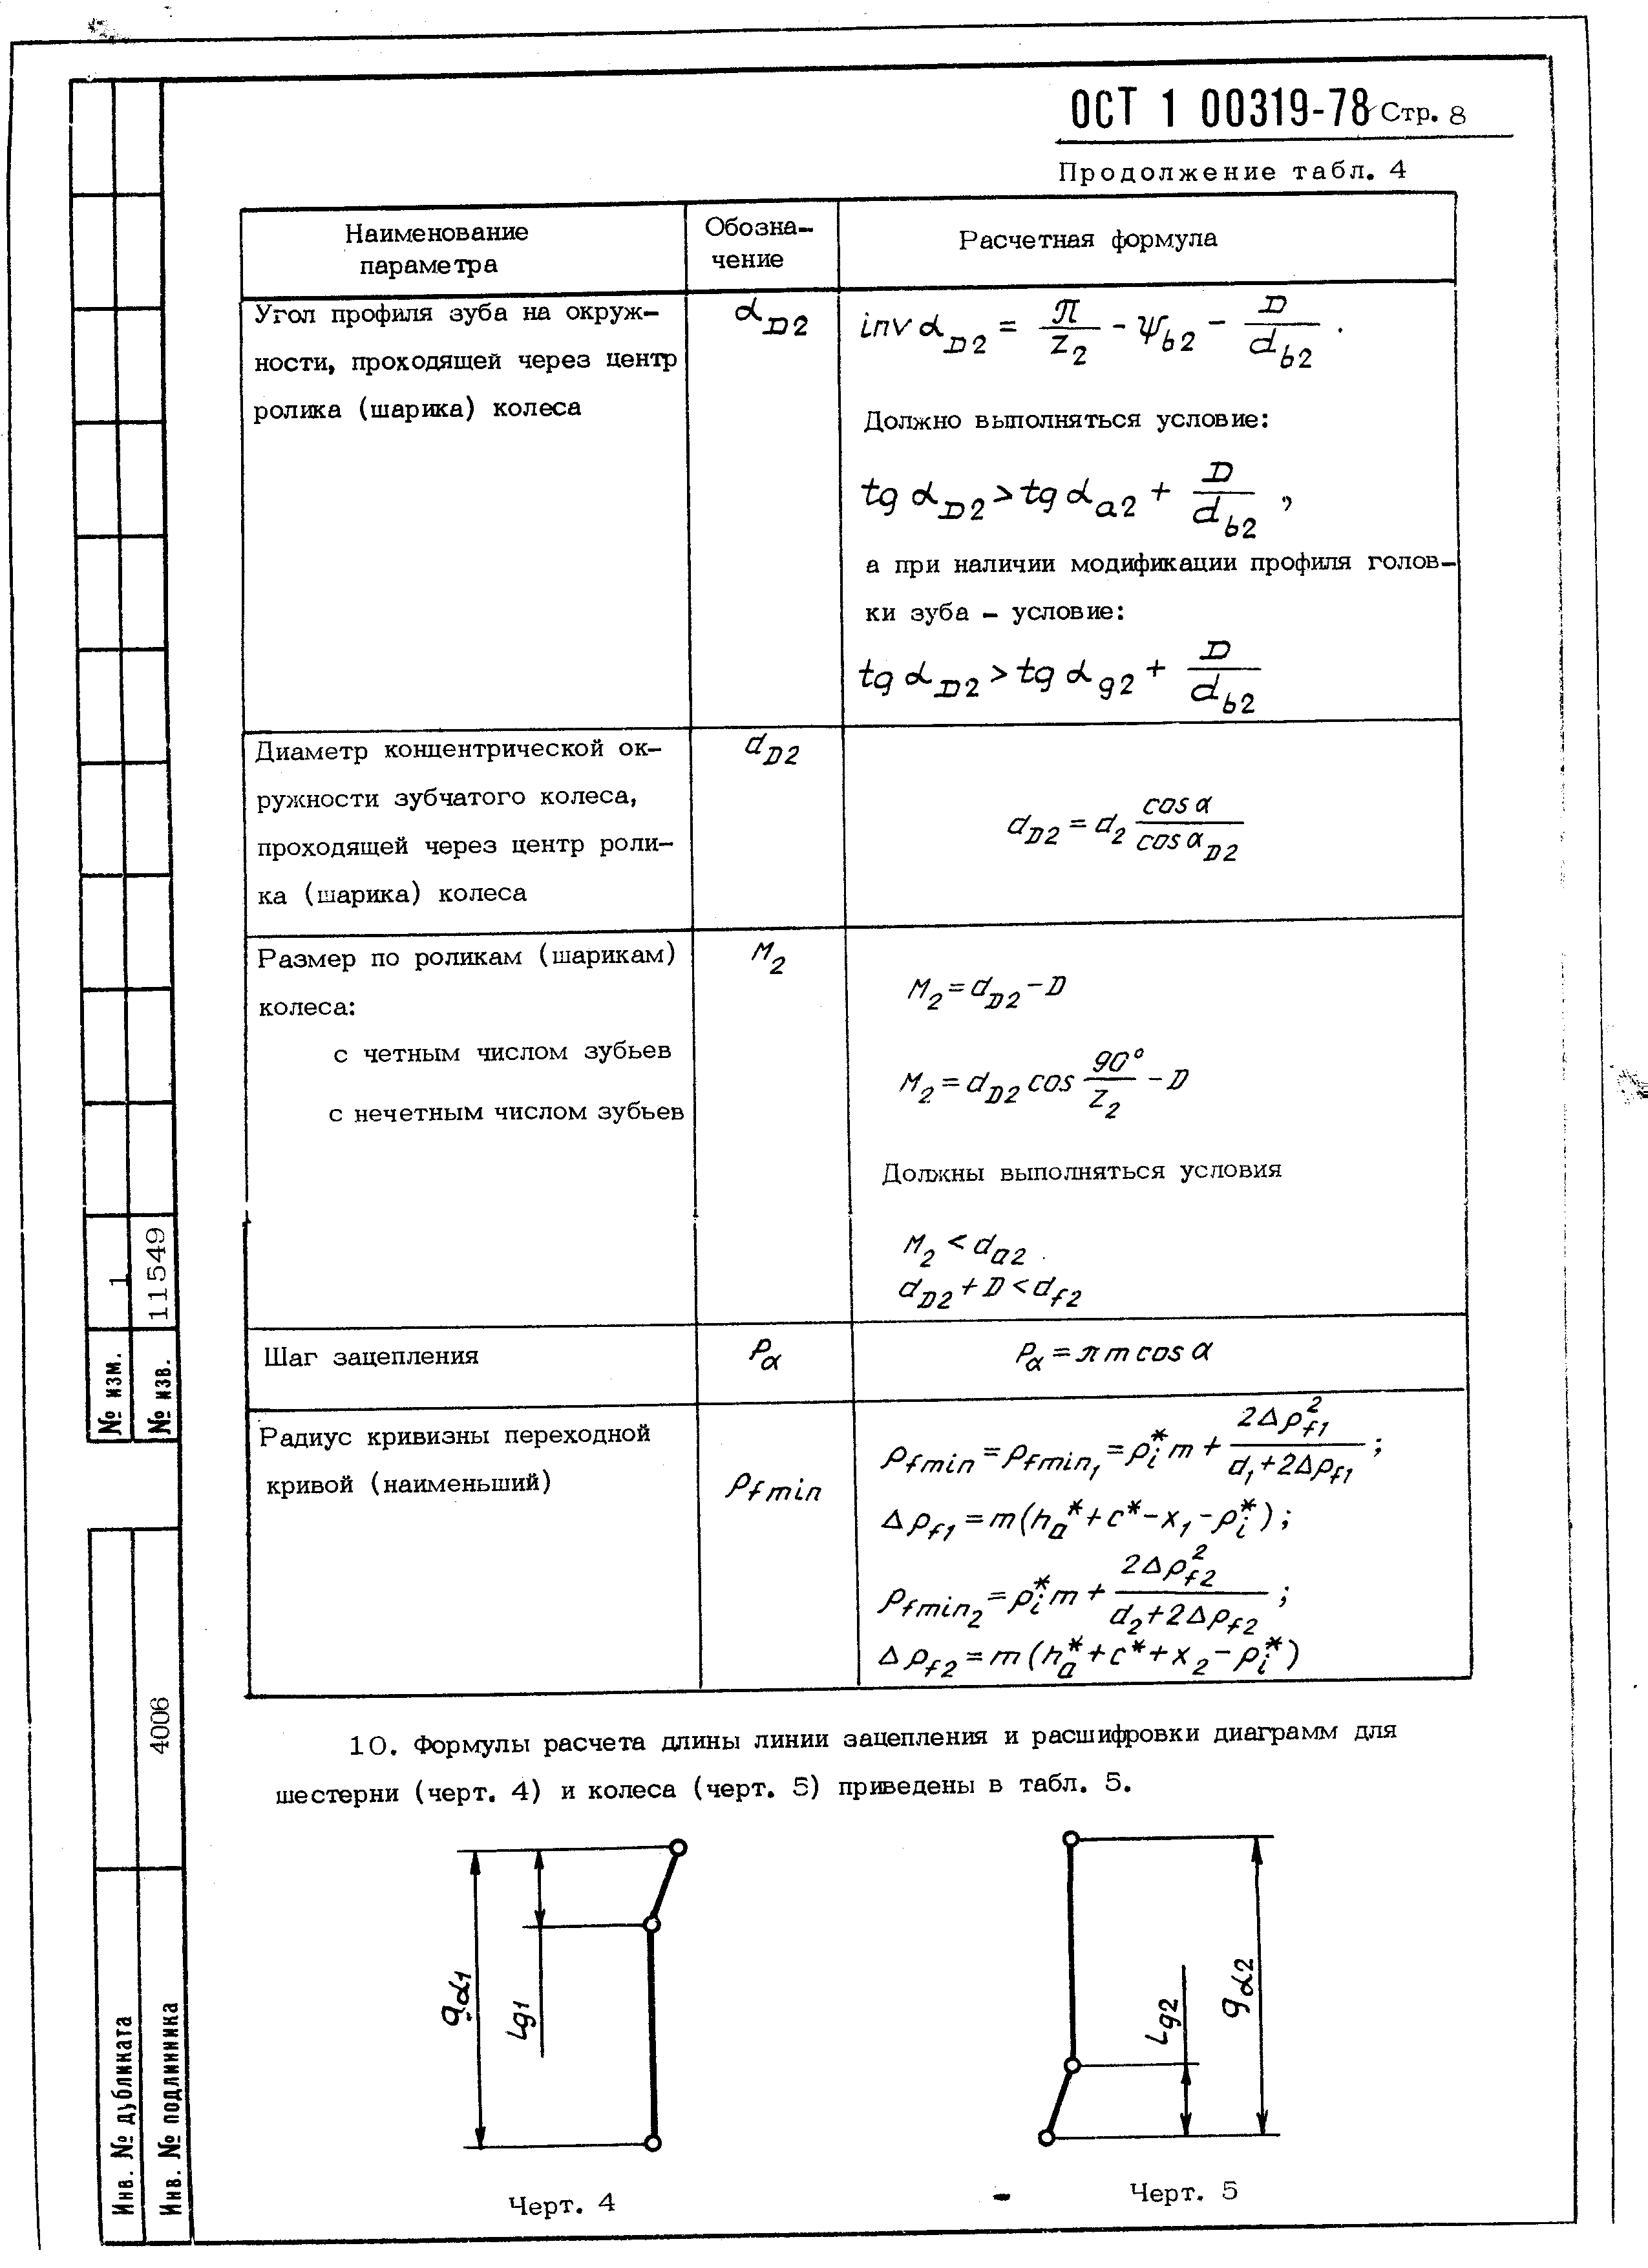 ОСТ 1 00319-78 Стр. 8
Продолжение табл. 4
Наименование параметра
Обозна-
чение
Расчетная формула
Угол профиля зуба на окруж-
ности, проходящей через центр
ролика (шарика) колеса
α_D2
inv α_D2 = π/z_2 - ψ_b2 - D/d_b2 .
Должно выполняться условие:
tg α_D2 > tg α_a2 + D/d_b2 ,
а при наличии модификации профиля голов-
ки зуба - условие:
tg α_D2 > tg α_g2 + D/d_b2
Диаметр концентрической ок-
ружности зубчатого колеса,
проходящей через центр роли-
ка (шарика) колеса
d_D2
d_D2 = d_2 cos α / cos α_D2
Размер по роликам (шарикам)
колеса:
с четным числом зубьев
с нечетным числом зубьев
M_2
M_2 = d_D2 - D
M_2 = d_D2 cos 90°/z_2 - D
Должны выполняться условия
M_2 < d_a2 .
d_D2 + D < d_f2
Шаг зацепления
P_α
P_α = π m cos α
Радиус кривизны переходной
кривой (наименьший)
ρ_fmin
ρ_fmin = ρ_fmin1 = ρ_i* m + 2Δρ_f1² / (d_1 + 2Δρ_f1) ;
Δρ_f1 = m(h_a* + c* - x_1 - ρ_i*) ;
ρ_fmin2 = ρ_i* m + 2Δρ_f2² / (d_2 + 2Δρ_f2) ;
Δρ_f2 = m(h_a* + c* + x_2 - ρ_i*)
10. Формулы расчета длины линии зацепления и расшифровки диаграмм для
шестерни (черт. 4) и колеса (черт. 5) приведены в табл. 5.
g_α1
L_g1
L_g2
g_α2
Черт. 4
Черт. 5
№ изм.
1
№ изв.
11549
4006
Инв. № дубликата
Инв. № подлинника